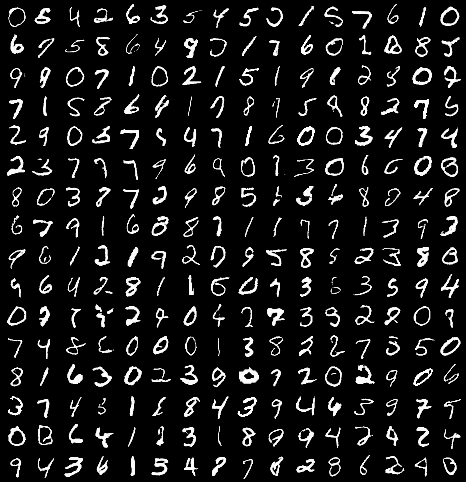 0 5 4 2 6 3 5 4 5 2 1 5 7 6 1 0
6 9 5 8 6 4 9 0 1 7 6 0 1 8 8 5
9 9 0 7 1 0 2 1 5 1 9 1 2 8 0 7
7 1 5 8 6 4 1 7 8 9 5 8 8 2 7 5
2 9 0 3 7 5 4 7 1 6 0 0 3 4 7 4
2 3 7 7 7 9 6 9 0 1 3 0 6 0 0 8
8 0 3 8 7 2 9 8 5 1 3 6 8 9 4 8
6 7 9 1 6 8 8 7 1 1 7 7 1 3 9 2
9 6 1 2 1 9 2 0 9 5 8 5 2 3 8 0
9 6 4 2 8 1 1 6 0 9 3 6 3 5 9 4
0 9 7 2 9 0 4 2 7 3 9 2 2 0 9
7 4 8 6 0 0 0 1 3 8 2 2 7 3 5 0
8 1 6 3 0 2 3 9 0 7 2 0 2 9 0 6
3 7 4 3 1 1 8 4 3 9 4 6 5 9 7 5
0 8 6 4 1 8 3 1 8 9 9 4 2 4 2 4
9 4 3 6 1 5 4 8 7 8 2 8 6 2 4 0